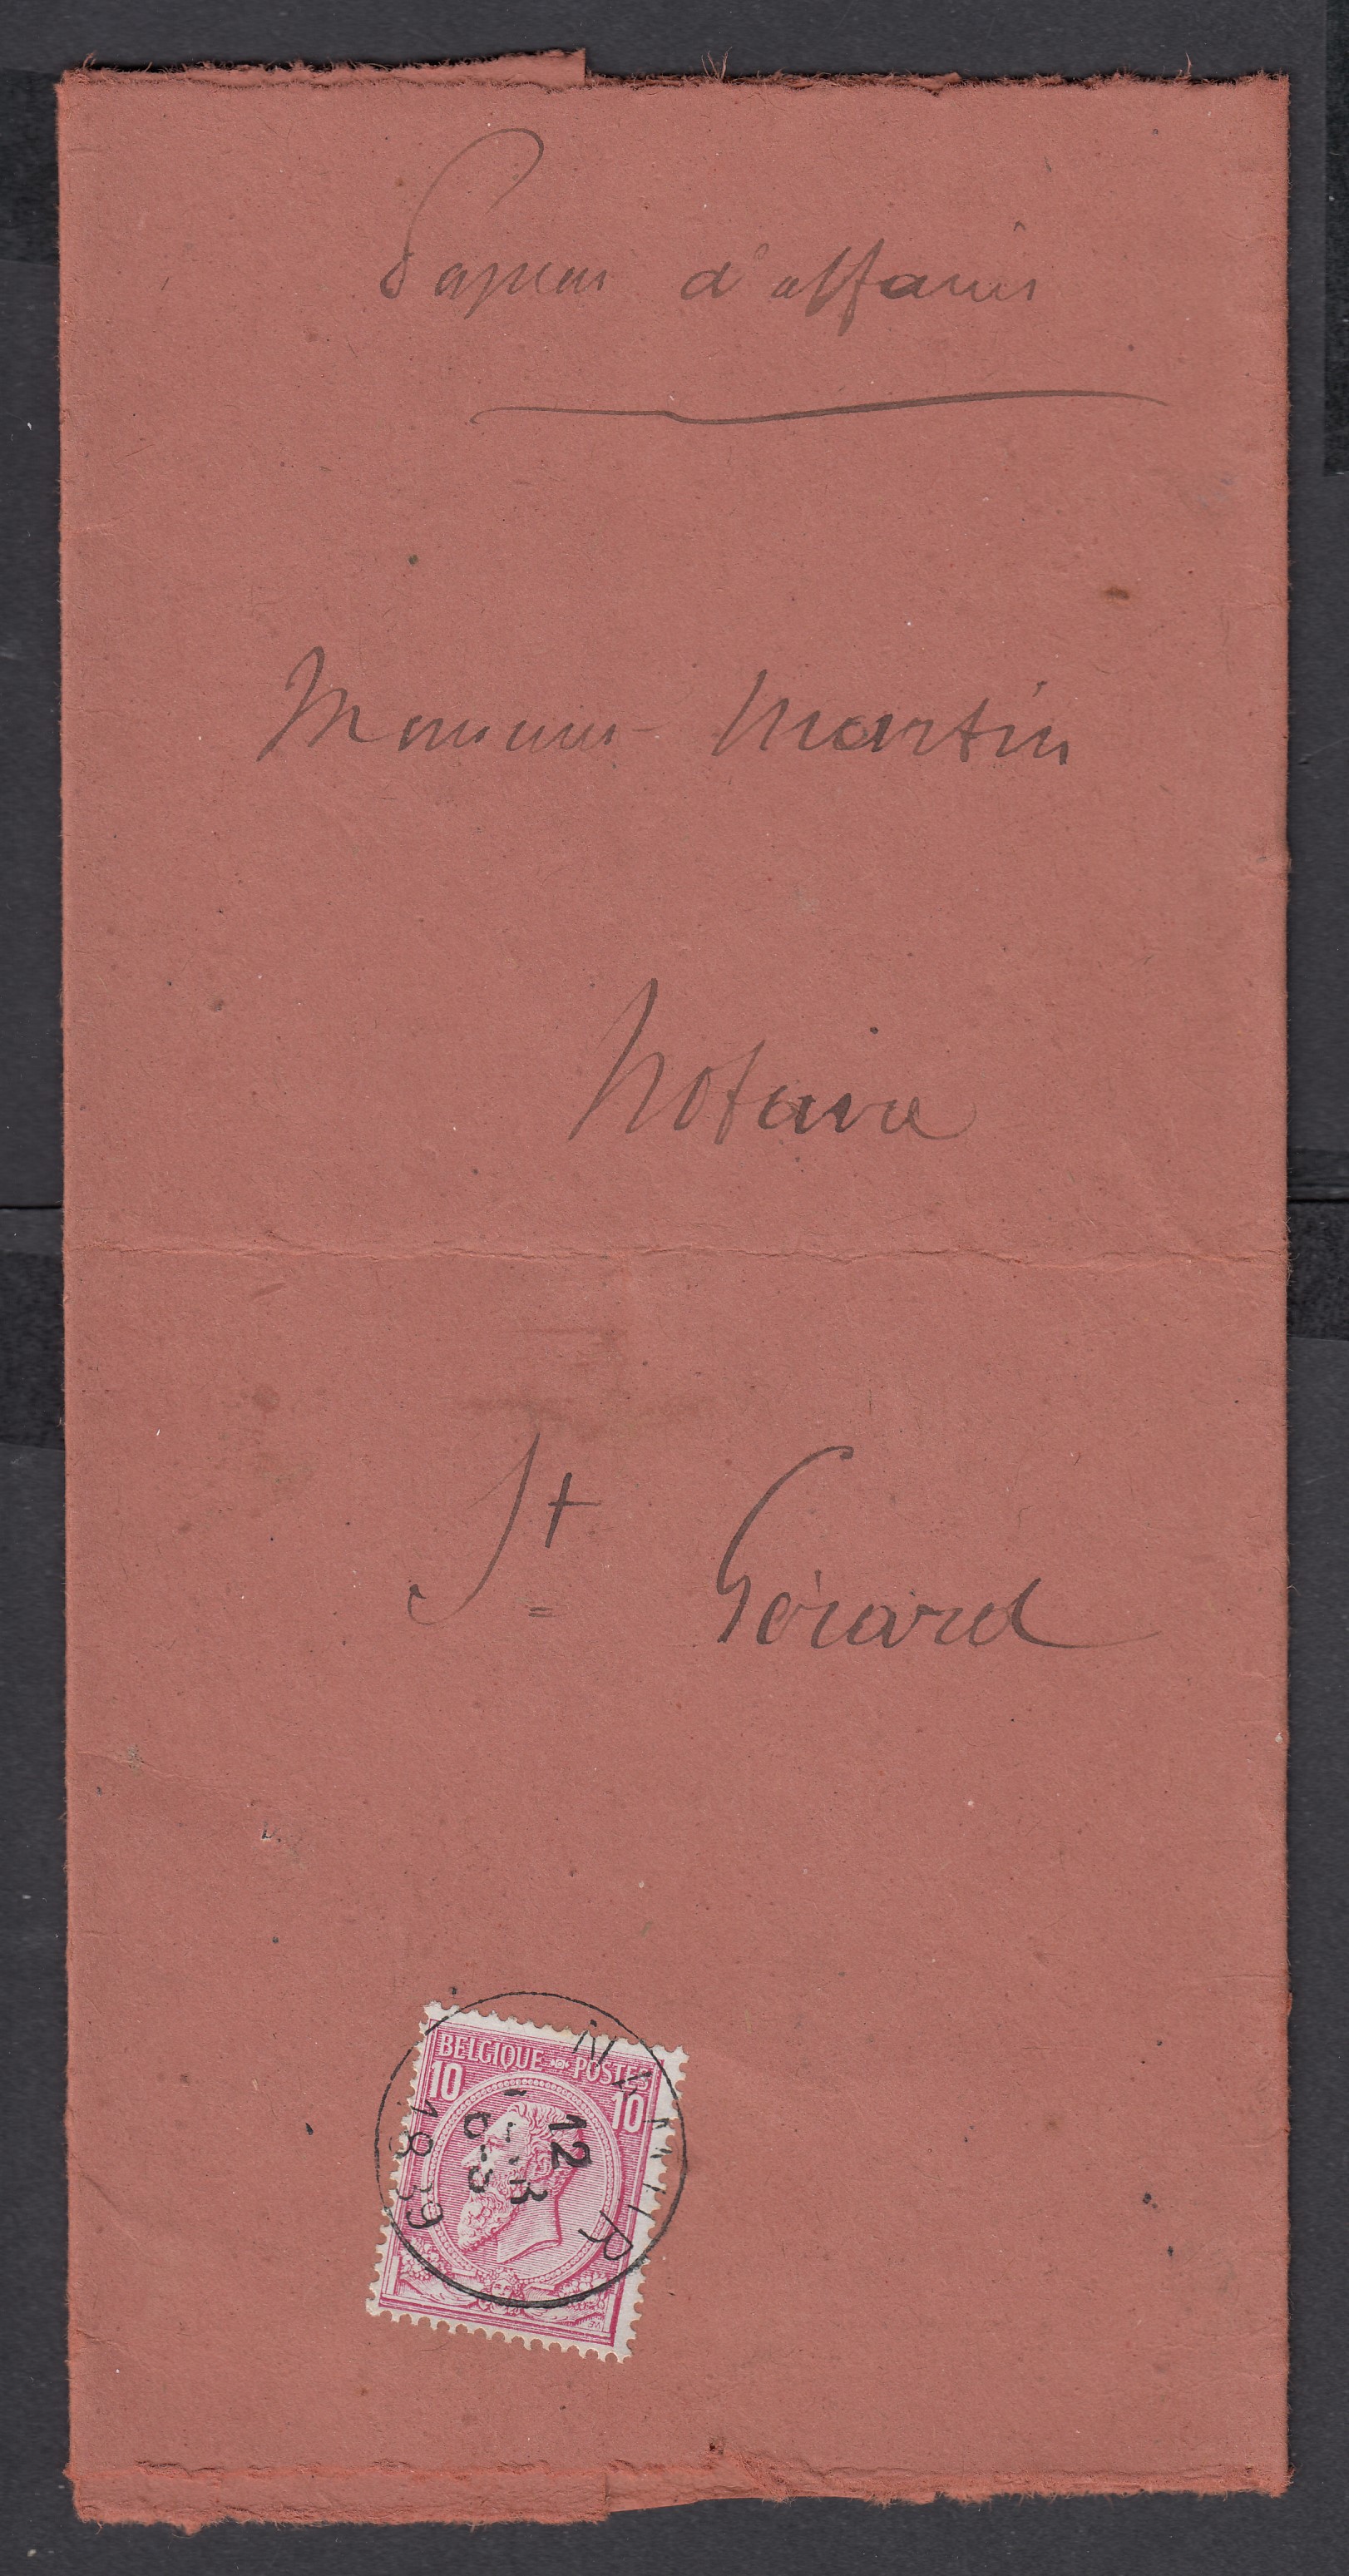 Papiers d'affaires
Monsieur Martin
Notaire
St Gérard
BELGIQUE POSTES
10 10
NAMUR
12
1889